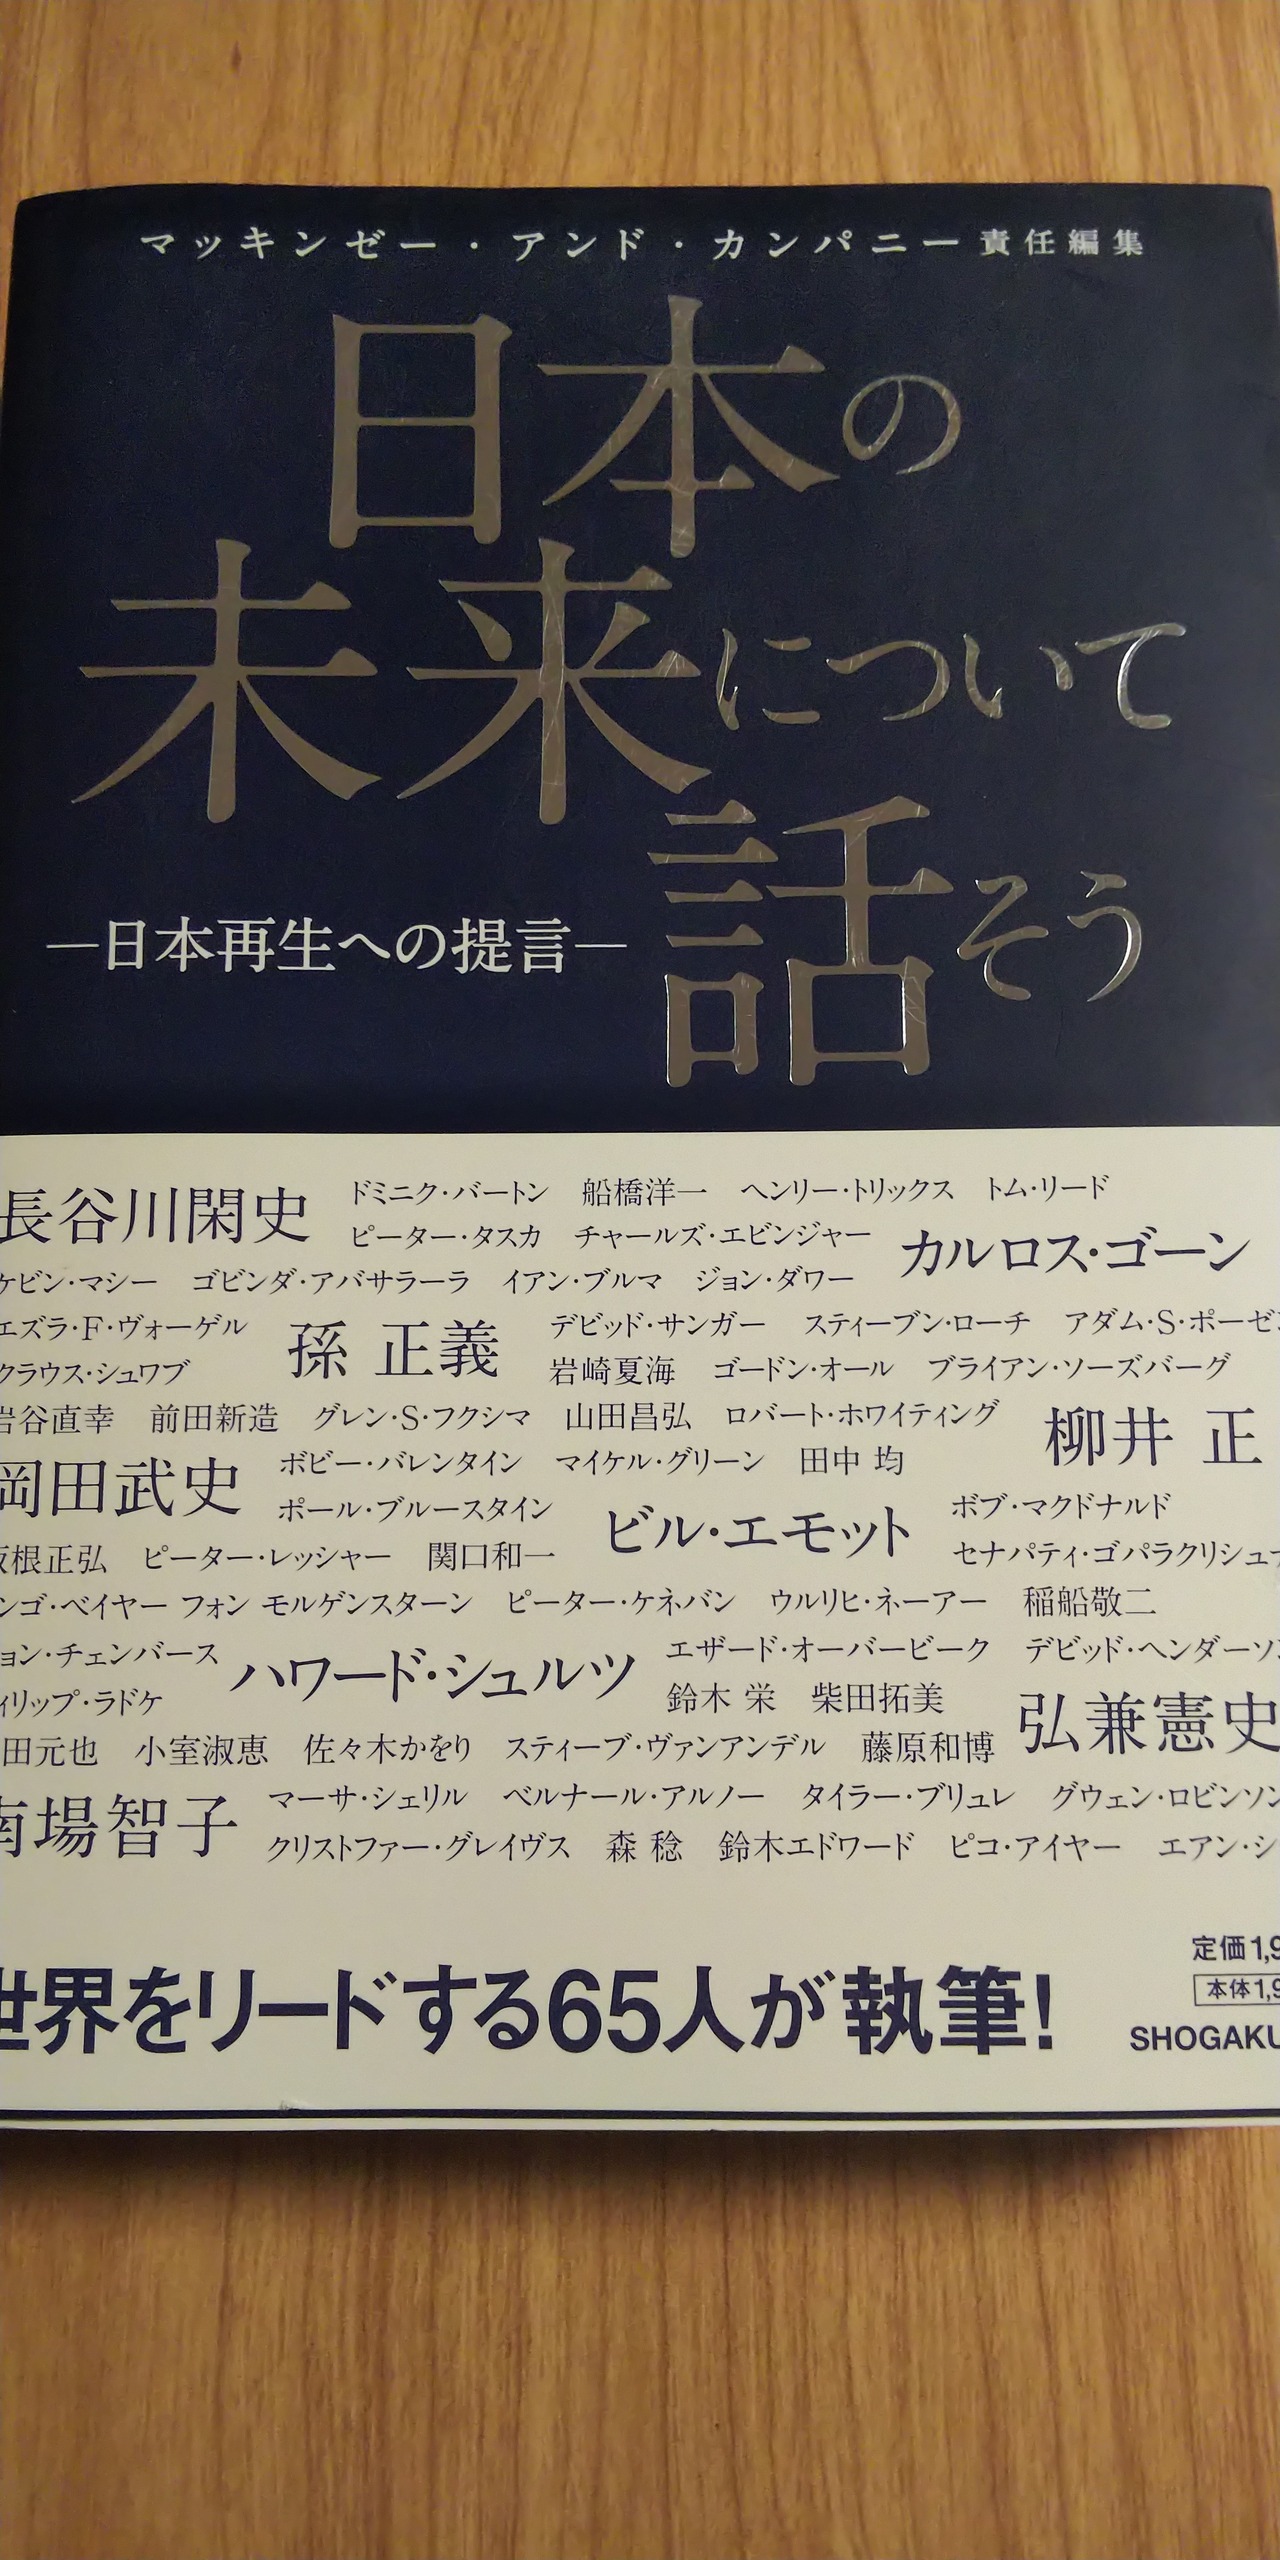 マッキンゼー・アンド・カンパニー 責任編集
日本の
未来について
話そう
―日本再生への提言―
長谷川閑史 ドミニク・バートン 船橋洋一 ヘンリー・トリックス トム・リード
ピーター・タスカ チャールズ・エビンジャー カルロス・ゴーン
ケビン・マシー ゴビンダ・アバサラーラ イアン・ブルマ ジョン・ダワー
エズラ・F・ヴォーゲル 孫 正義 デビッド・サンガー スティーブン・ローチ アダム・S・ポーゼ
クラウス・シュワブ 岩崎夏海 ゴードン・オール ブライアン・ソーズバーグ
岩谷直幸 前田新造 グレン・S・フクシマ 山田昌弘 ロバート・ホワイティング 柳井 正
岡田武史 ボビー・バレンタイン マイケル・グリーン 田中 均
ポール・ブルースタイン ビル・エモット ボブ・マクドナルド
坂根正弘 ピーター・レッシャー 関口和一 セナパティ・ゴパラクリシュナ
ンゴ・ベイヤー フォン モルゲンスターン ピーター・ケネバン ウルリヒ・ネーアー 稲船敬二
ョン・チェンバース ハワード・シュルツ エザード・オーバービーク デビッド・ヘンダーソン
ィリップ・ラドケ 鈴木 栄 柴田拓美 弘兼憲史
田元也 小室淑恵 佐々木かをり スティーブ・ヴァンアンデル 藤原和博
南場智子 マーサ・シェリル ベルナール・アルノー タイラー・ブリュレ グウェン・ロビンソン
クリストファー・グレイヴス 森 稔 鈴木エドワード ピコ・アイヤー エアン・シ
世界をリードする65人が執筆!
定価1,9
本体1,9
SHOGAKU